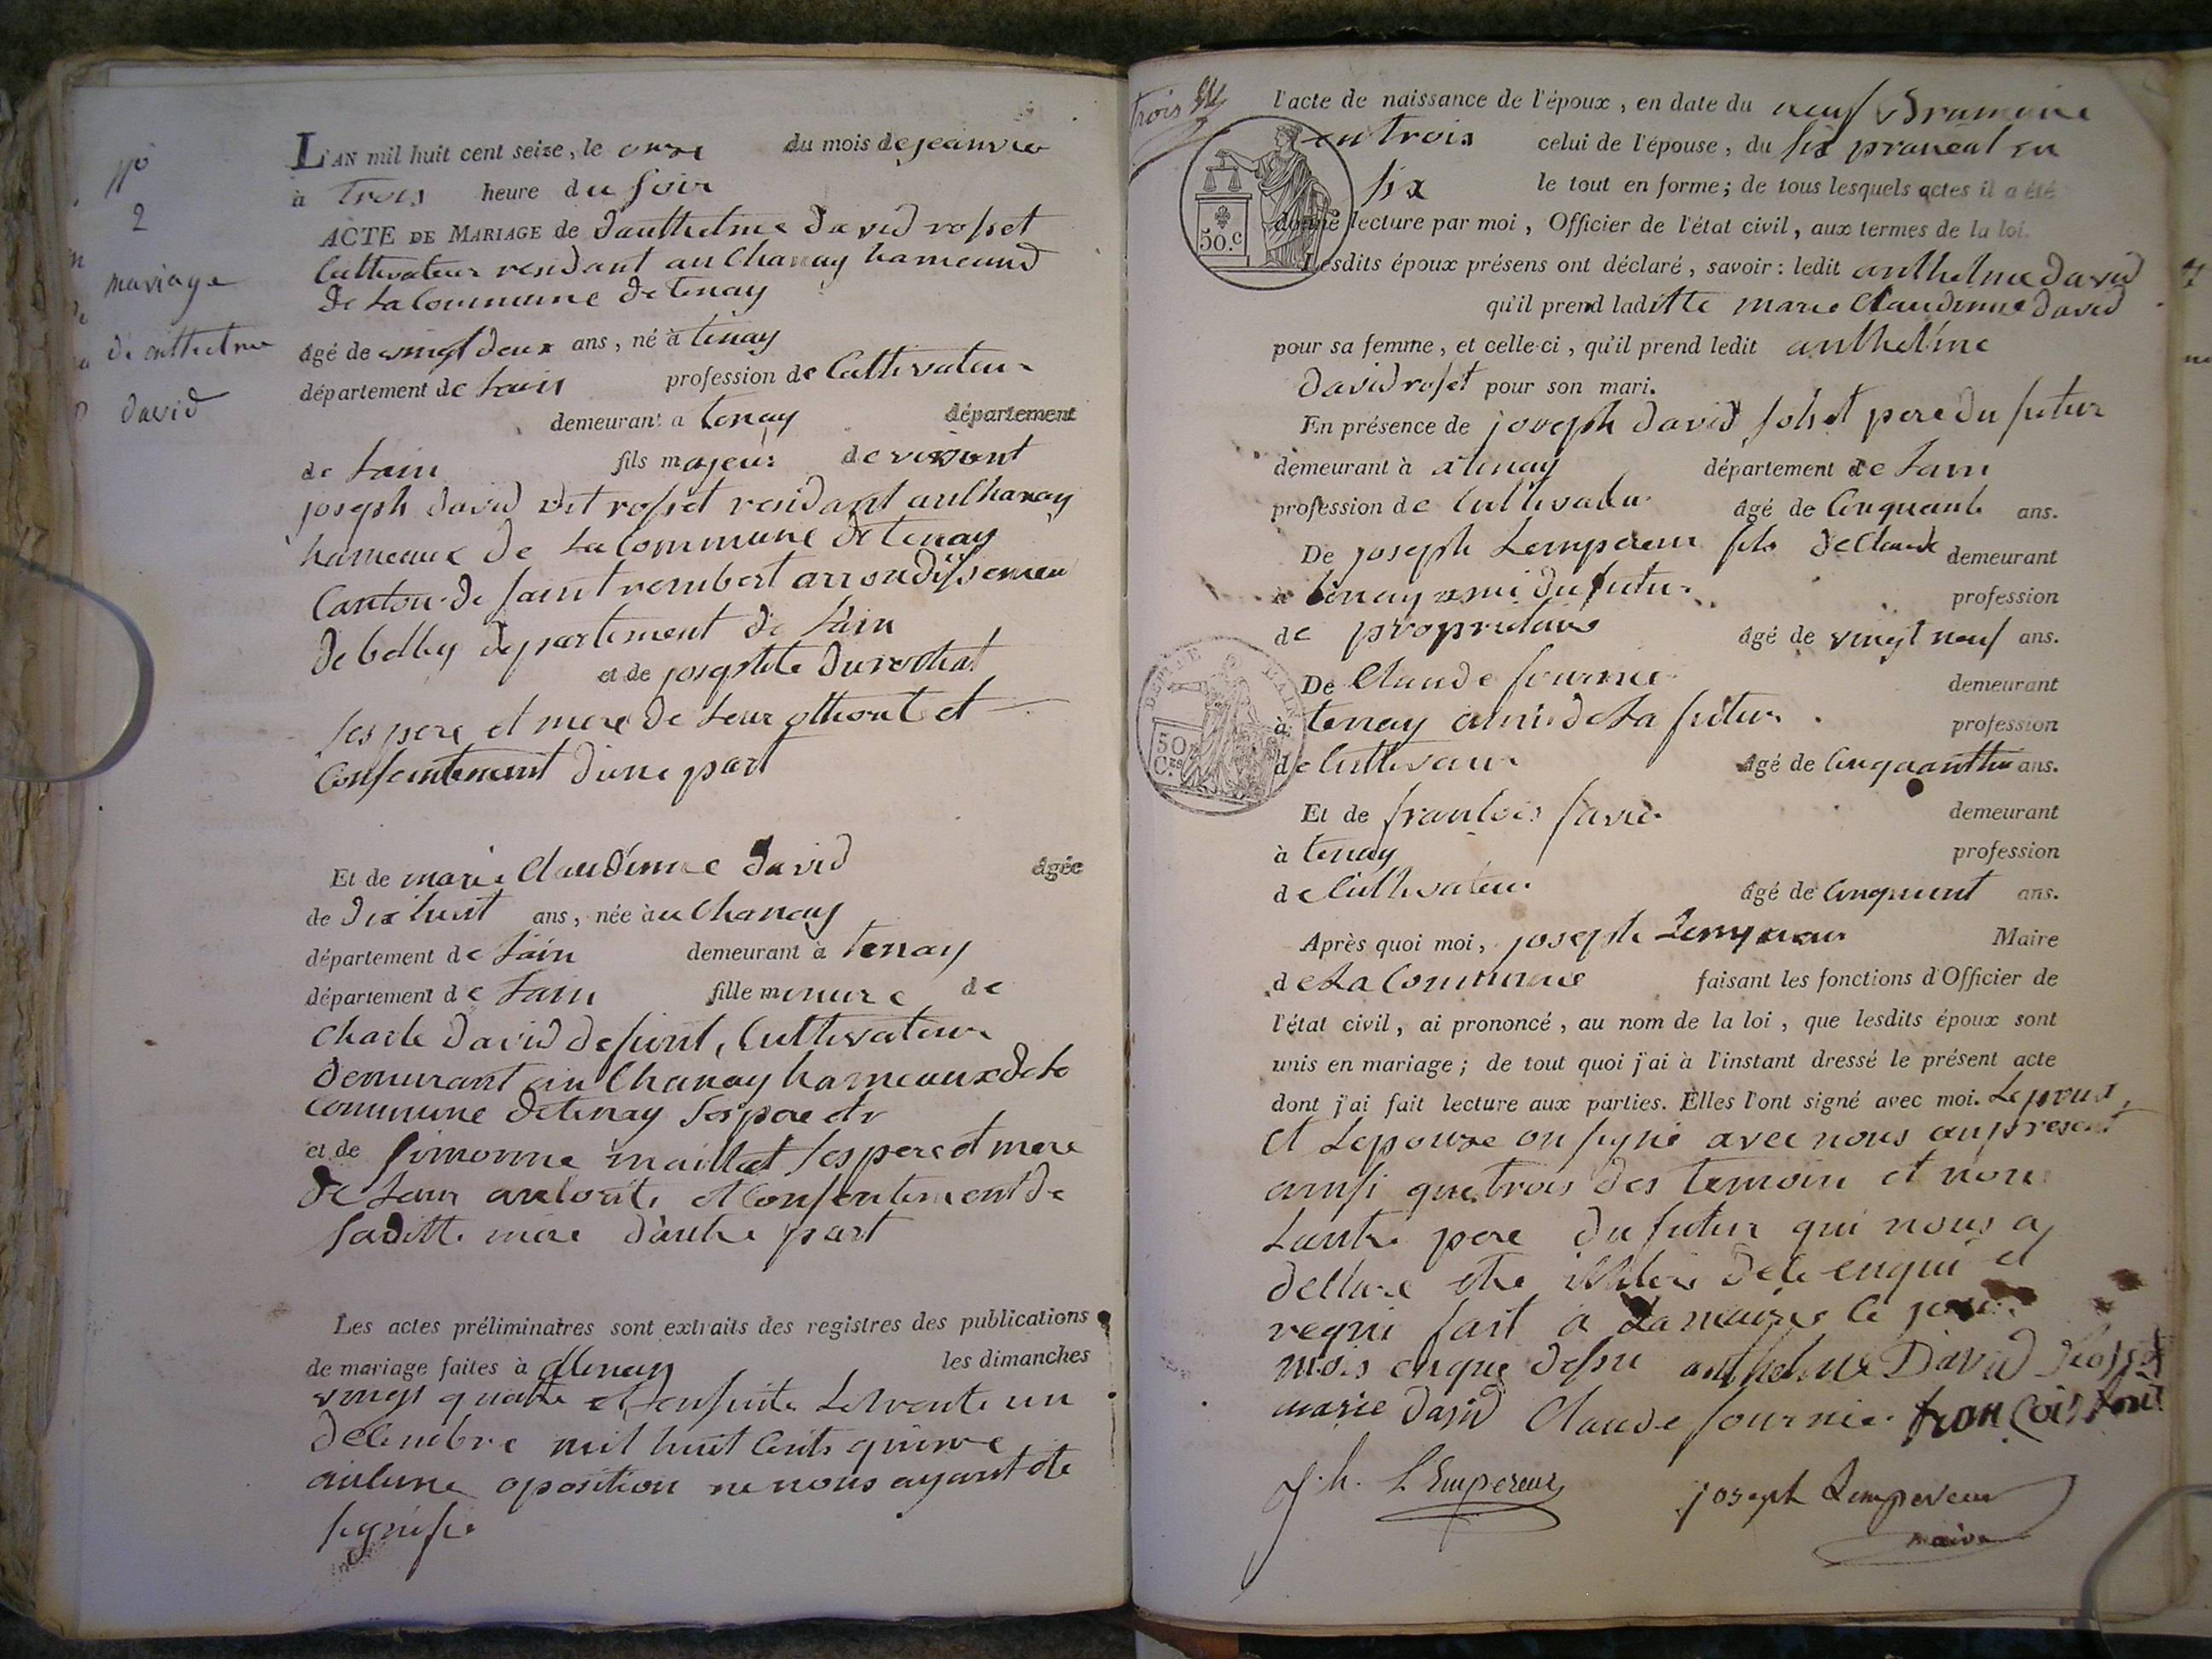 n°
2
mariage
d'anthelme
david
L'AN mil huit cent seize, le onze du mois de jeanvier
à trois heure du soir
ACTE DE MARIAGE de danthelme david rosset
Cultivateur residant au Chanay hameaud
de La Commune de tenay
âgé de vingt deux ans, né à tenay
département de Lain profession de Cultivateur
demeurant a tenay département
de Lain fils majeur de vivant
joseph david dit rosset residant au Chanay
hameaux de La Commune de tenay
Canton de saint rembert arrondissemen
de belley departement de Lain
et de josephte durochat
ses pere et mere de Leur othorité et
Consentement d'une part
Et de marie Claudinne david âgée
de dix huit ans, née au Chanay
département de Lain demeurant à tenay
département de Lain fille mineure de
Charle david defunt, Cultivateur
demeurant au Chanay hameaux de la
Commune de tenay ses pere et
et de simonne maillet ses pere et mere
de Leur autorité et Consentement de
saditte mere d'autre part
Les actes préliminaires sont extraits des registres des publications
de mariage faites à atenay les dimanches
vingt quatre et ensuite Le trente un
decembre mil huit Cents quinze
aucune oposition ne nous ayant ete
signifie
trois
50.c
l'acte de naissance de l'époux, en date du neuf Brumaire
an trois celui de l'épouse, du six praireal en
six le tout en forme; de tous lesquels actes il a été
donné lecture par moi, Officier de l'état civil, aux termes de la loi.
Lesdits époux présens ont déclaré, savoir: ledit anthelme david
qu'il prend laditte marie Claudinne david
pour sa femme, et celle-ci, qu'il prend ledit anthelme
david roset pour son mari.
En présence de joseph david roset pere du futur
demeurant à atenay département de Lain
profession de Cultivateur âgé de Cinquante ans.
De joseph Lempereur fils de Claude demeurant
à tenay ami du futur profession
de propriétaire âgé de vingt neuf ans.
50
C.es
De Claude fournier demeurant
à tenay ami de La futur profession
de Cultivateur âgé de ans.
Et de francois demeurant
à tenay profession
de Cultivateur âgé de Cinquent ans.
Après quoi moi, joseph Lempereur Maire
de La Commune faisant les fonctions d'Officier de
l'état civil, ai prononcé, au nom de la loi, que lesdits époux sont
unis en mariage; de tout quoi j'ai à l'instant dressé le présent acte
dont j'ai fait lecture aux parties. Elles l'ont signé avec moi. Lepoux
et Lepouse on signé avec nous au present
ainsi que trois des temoin et non
Lautre pere du futur qui nous a
dellaré etre illitere de ce enqui et
requi fait a La mairie le jour
mois en que dessu anthelme David Rosset
marie david Claude fournier francois
Jh. LEmpereur joseph Lempereur
maire